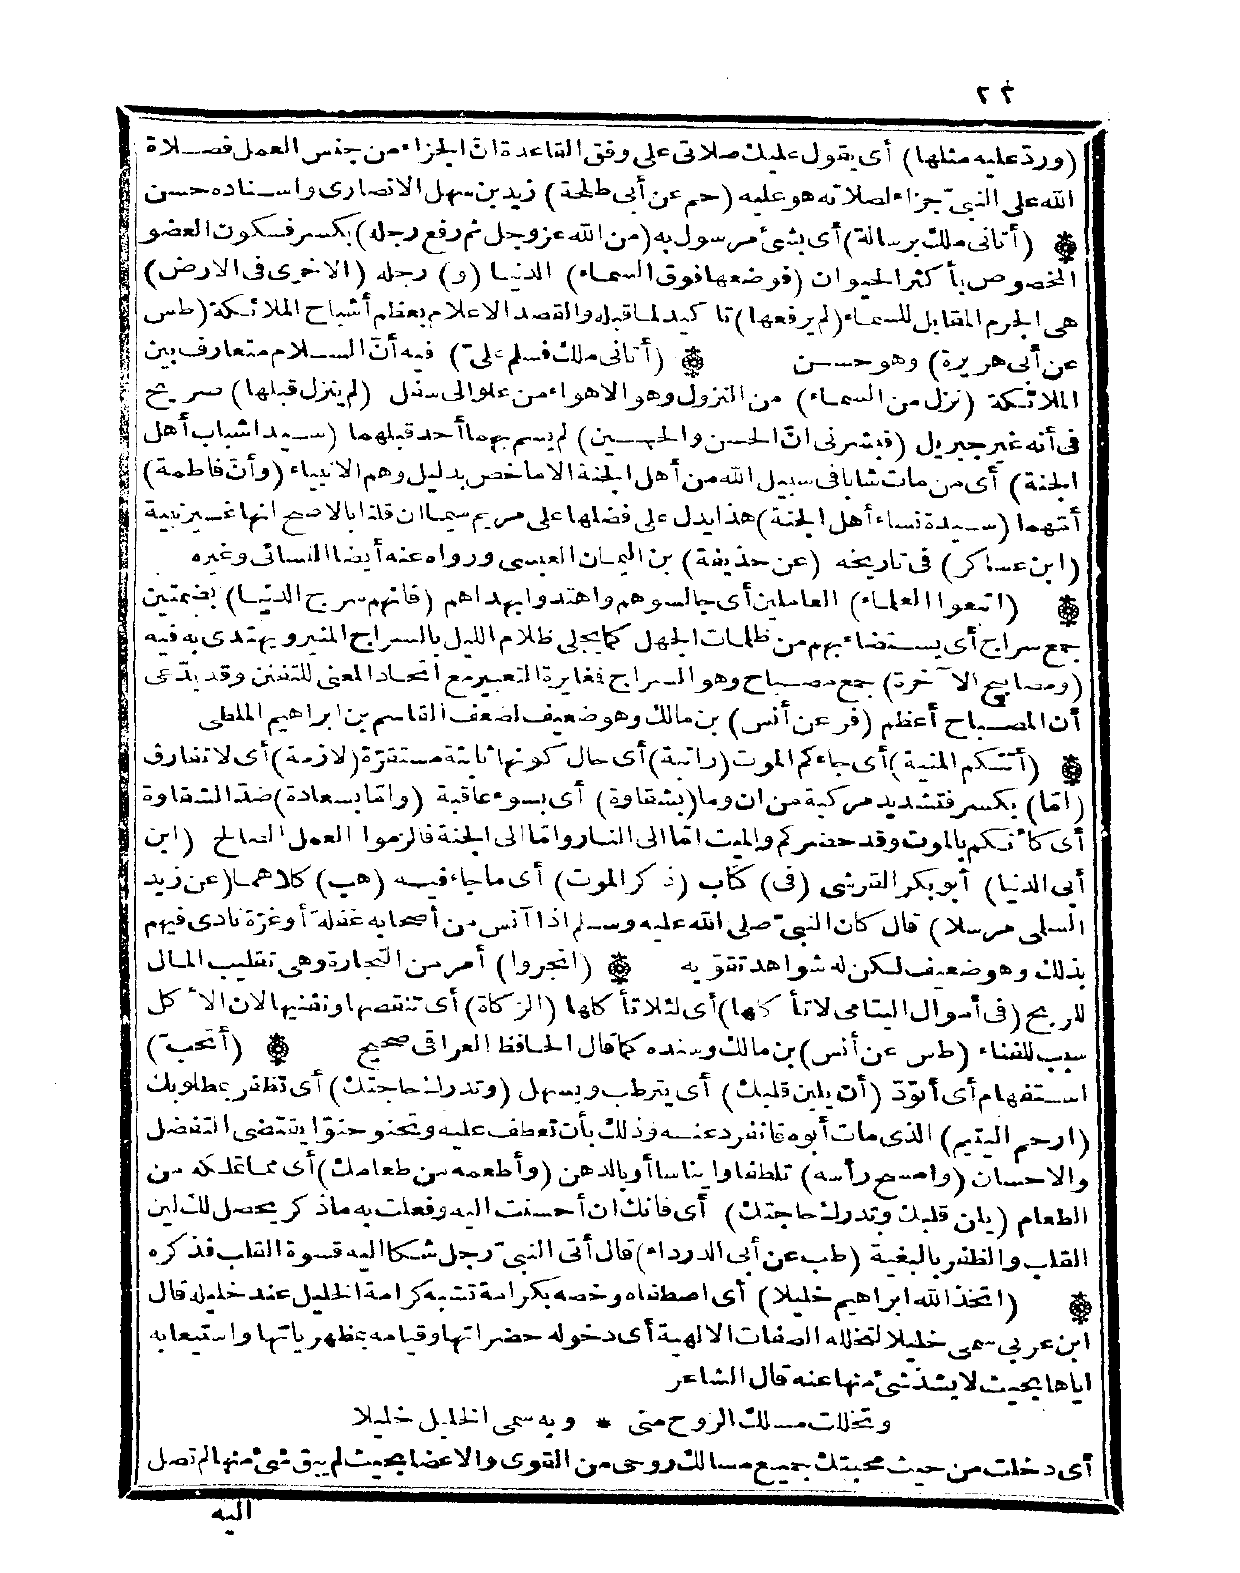 ٢٢
(وردّ عليه مثلها) أى يقول عليك صلاتى على وفق القاعدة انّ الجزاء من جنس العمل فصلاة
الله على النبىّ جزاء لصلاته هو عليه (حم عن أبى طلحة) زيد بن سهل الانصارى واسناده حسن
۞ (أتانى ملك برسالة) أى بشئ مرسول به (من الله عزوجل ثم رفع رجله) بكسر فسكون العضو
المخصوص بأكثر الحيوان (فوضعها فوق السماء) الدنيا (و) رجله (الاخرى فى الارض)
هى الجرم المقابل للسماء (لم يرفعها) تاكيد لما قبله والقصد الاعلام بعظم أشباح الملائكة (طس
عن أبى هريرة) وهو حسن ۞ (أتانى ملك فسلم علىّ) فيه أنّ السلام متعارف بين
الملائكة (نزل من السماء) من النزول وهو الاهواء من علو الى سفل (لم ينزل قبلها) صريح
فى أنه غير جبريل (فبشرنى انّ الحسن والحسين) لم يسم بهما أحد قبلهما (سيدا شباب أهل
الجنة) أى من مات شابا فى سبيل الله من أهل الجنة الا ما خص بدليل وهم الانبياء (وأنّ فاطمة)
أمّهما (سيدة نساء أهل الجنة) هذا يدل على فضلها على مريم سيما ان قلنا بالاصح انها غير نبية
(ابن عساكر) فى تاريخه (عن حذيفة) بن اليمان العبسى ورواه عنه أيضا النسائى وغيره
۞ (اتبعوا العلماء) العاملين أى جالسوهم واهتدوا بهداهم (فانهم سرج الدنيا) بضمتين
جمع سراج أى يستضاء بهم من ظلمات الجهل كما يجلى ظلام الليل بالسراج المنير ويهتدى به فيه
(ومصابيح الآخرة) جمع مصباح وهو السراج فغايرة التعبير مع اتحاد المعنى للتفنن وقد يدّعى
أن المصباح أعظم (فر عن أنس) بن مالك وهو ضعيف لضعف القاسم بن ابراهيم الملطى
۞ (أتتكم المنية) أى جاءكم الموت (راتبة) أى حال كونها ثابتة مستقرّة (لازمة) أى لا تفارق
(امّا) بكسر فتشديد مركبة من ان وما (بشقاوة) أى بسوء عاقبة (وامّا بسعادة) ضدّ الشقاوة
أى كأنكم بالموت وقد حضركم والميت امّا الى النار وامّا الى الجنة فالزموا العمل الصالح (ابن
أبى الدنيا) أبو بكر القرشى (فى) كتاب (ذكر الموت) أى ما جاء فيه (هب) كلاهما (عن زيد
السلمى مرسلا) قال كان النبىّ صلى الله عليه وسلم اذا آنس من أصحابه غفلة أو غرّة نادى فيهم
بذلك وهو ضعيف لكن له شواهد تقوّيه ۞ (اتجروا) أمر من التجارة وهى تقليب المال
للربح (فى أموال اليتامى لا تأكلها) أى لئلا تأكلها (الزكاة) أى تنقصها وتفنيها لان الاكل
سبب للفناء (طس عن أنس) بن مالك وسنده كما قال الحافظ العراقى صحيح ۞ (أتحبّ)
استفهام أى أتودّ (أن يلين قلبك) أى يترطب ويسهل (وتدرك حاجتك) أى تظفر بمطلوبك
(ارحم اليتيم) الذى مات أبوه فانفرد عنه وذلك بأن تعطف عليه وتحنو حنوّا يقتضى التفضل
والاحسان (وامسح رأسه) تلطفا وايناسا أو بالدهن (وأطعمه من طعامك) أى مما تملكه من
الطعام (يلن قلبك وتدرك حاجتك) أى فانك ان أحسنت اليه وفعلت به ما ذكر يحصل لك لين
القلب والظفر بالبغية (طب عن أبى الدرداء) قال أتى النبىّ رجل شكا اليه قسوة القلب فذكره
۞ (اتخذ الله ابراهيم خليلا) أى اصطفاه وخصه بكرامة تشبه كرامة الخليل عند خليله قال
ابن عربى سمى خليلا لتخلله الصفات الالهية أى دخوله حضراتها وقيامه بمظهرياتها واستيعابه
اياها بحيث لا يشذ شئ منها عنه قال الشاعر
وتخللت مسلك الروح منى * وبه سمى الخليل خليلا
أى دخلت من حيث محبتك جميع مسالك روحى من القوى والاعضا بحيث لم يبق شئ منها لم تصل
اليه